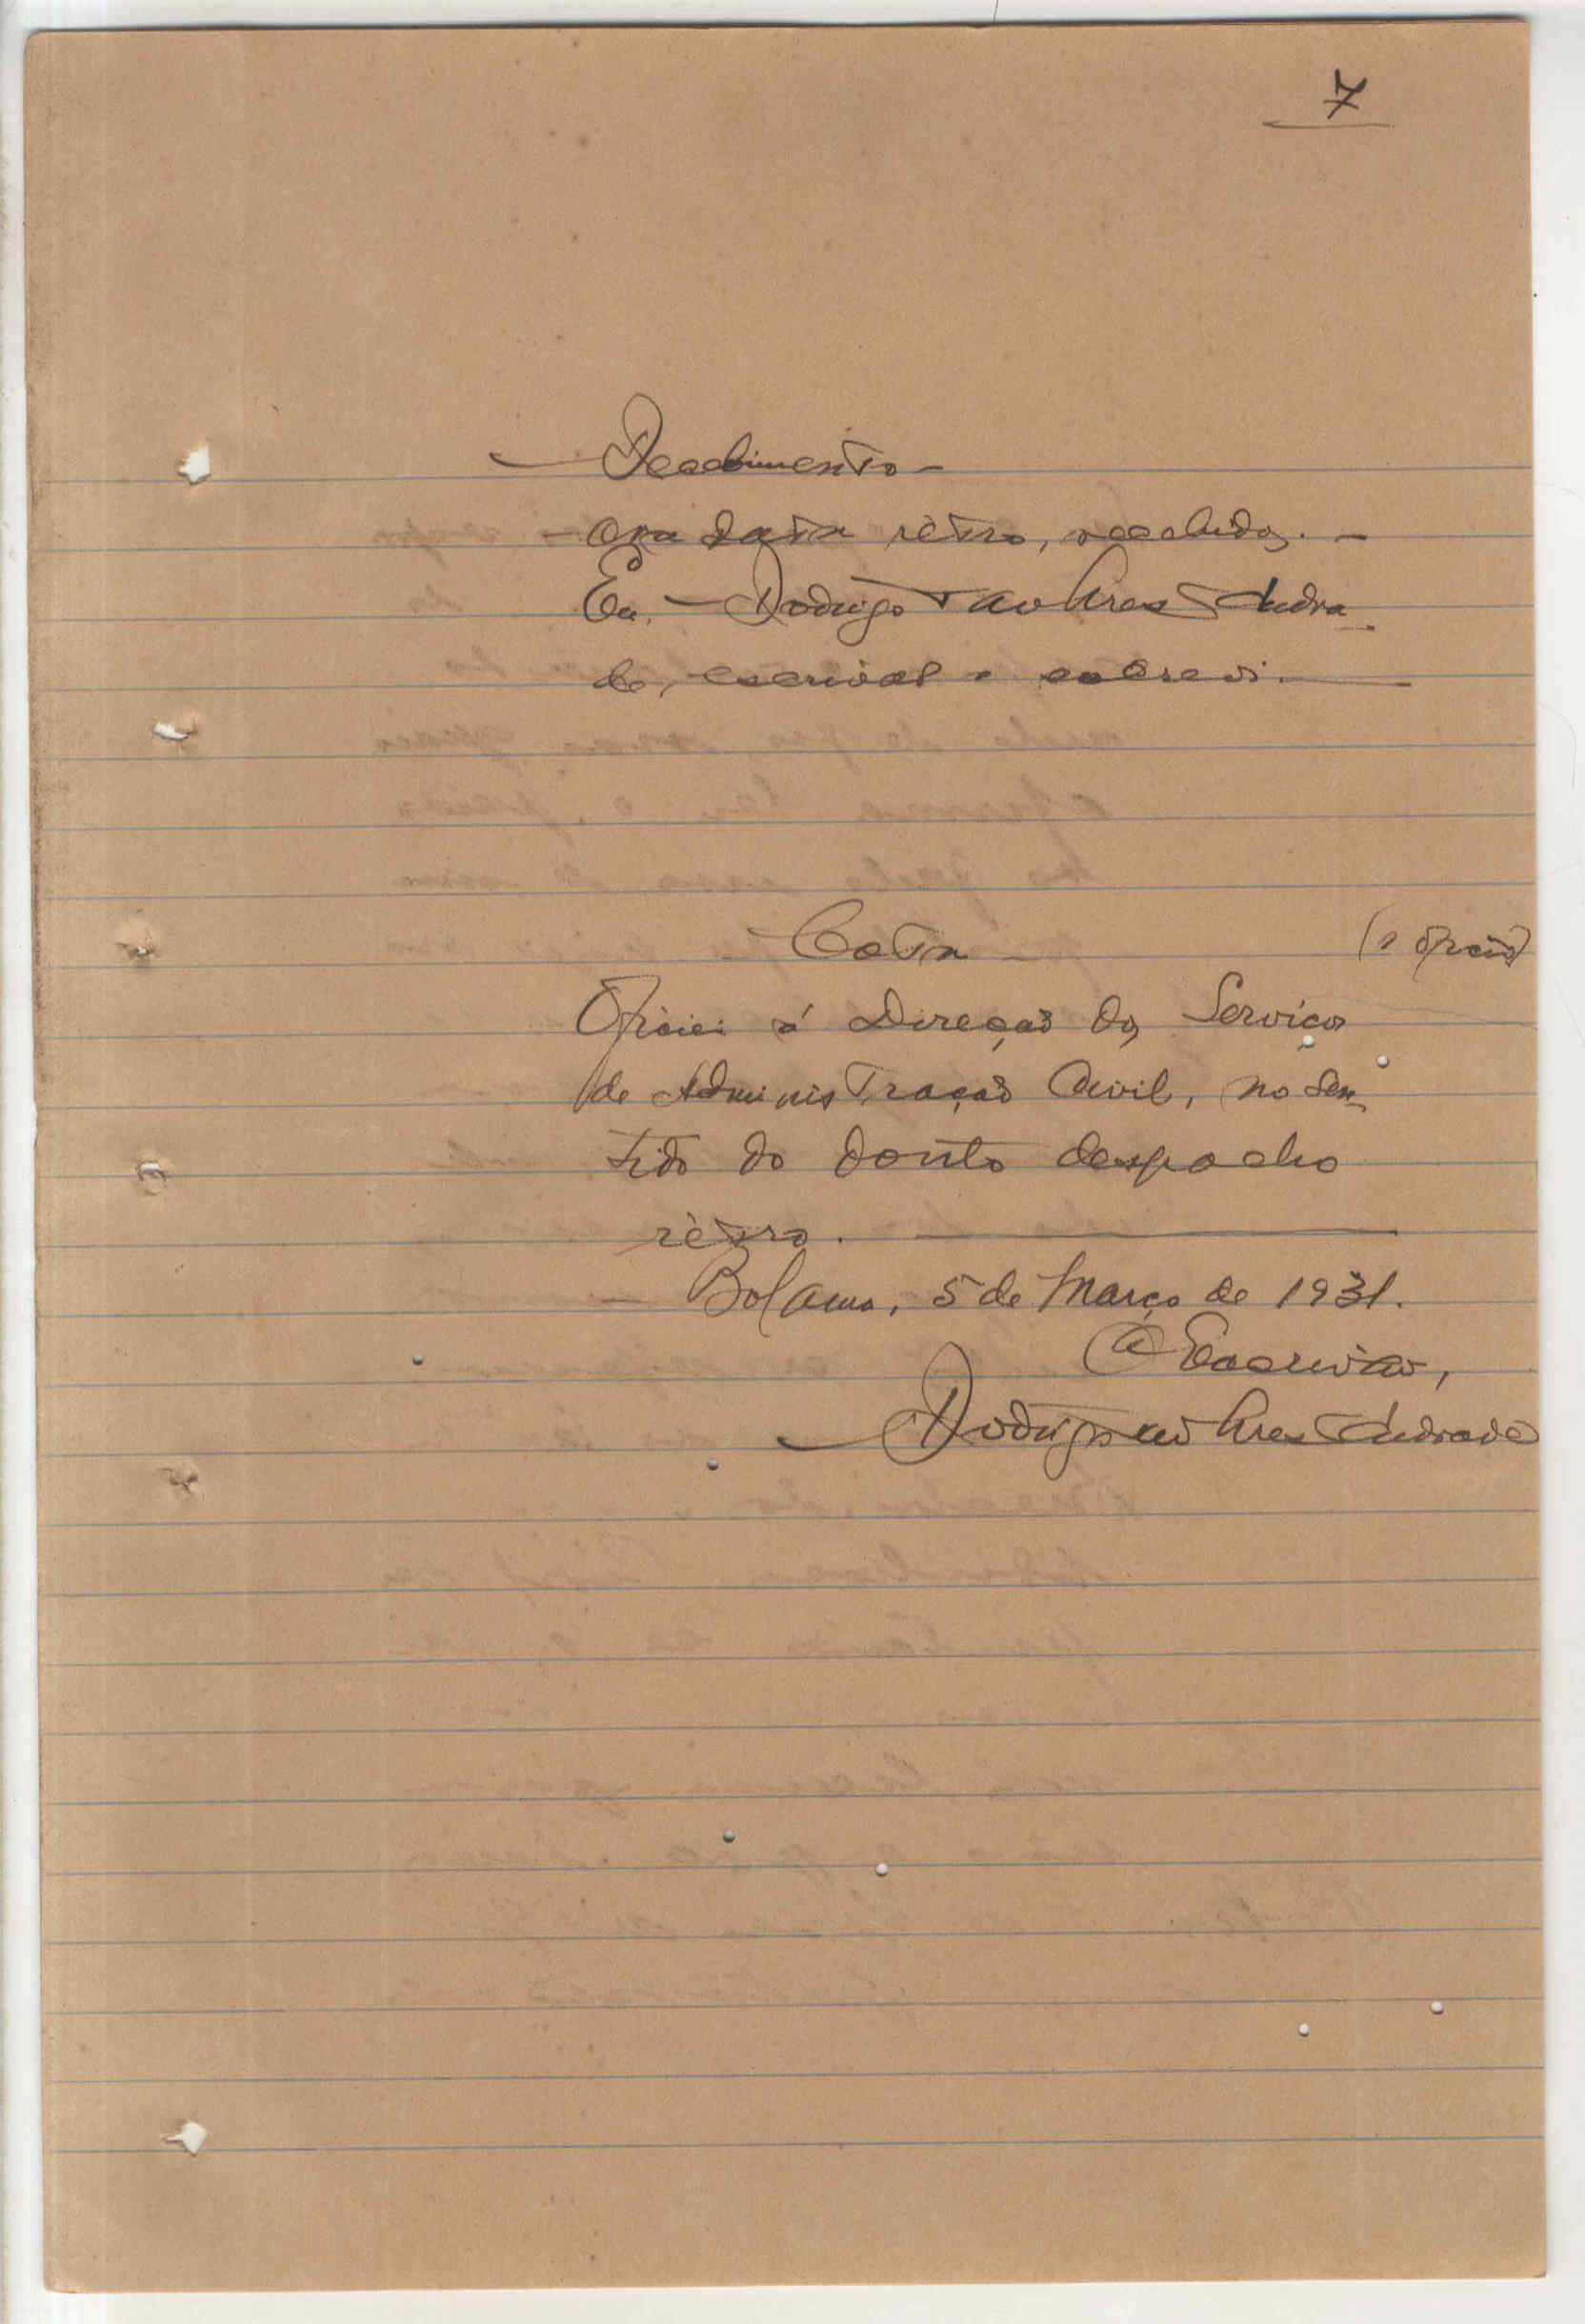 7
— Recebimento —
— Na data rètro, recebidos. —
Eu, — Rodrigo Tavares Andra-
de, escrivão o escrevi. —
— Cota — (1 ofício)
Oficiei á Direcção dos Serviços
de Administração Civil, no sen-
tido do douto despacho
rètro. —
— Bolama, 5 de Março de 1931.
O Escrivão,
— Rodrigo Tavares Andrade